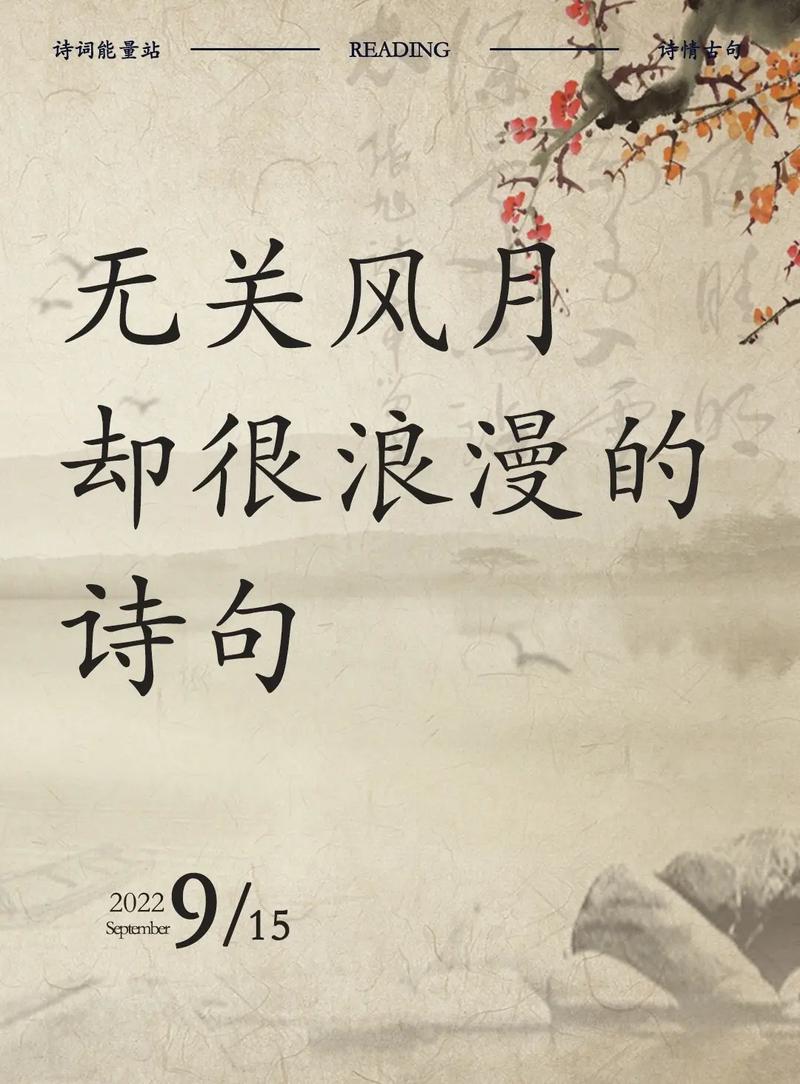 诗词能量站 READING 诗情古句
无关风月
却很浪漫的
诗句
2022 9/15
September